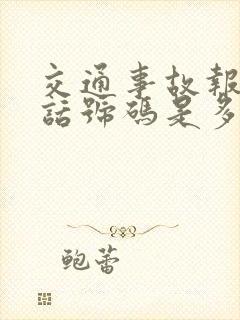 交通事故報
話號碼是多
鮑蕾